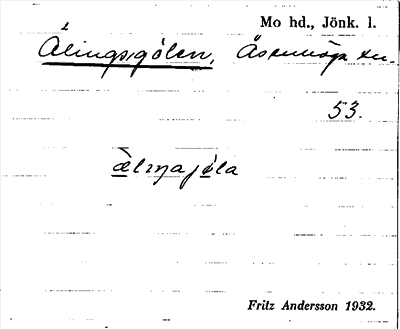 Mo hd., Jönk. l.
Ålingsgölen, Åsenhöga sn.
53.
àlıŋajøla
Fritz Andersson 1932.